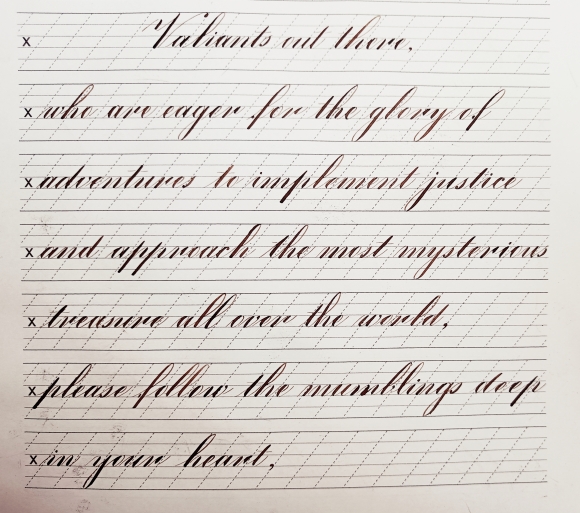 Valiants out there,
x who are eager for the glory of
x adventures to implement justice
x and approach the most mysterious
x treasure all over the world,
x please follow the mumblings deep
x in your heart,